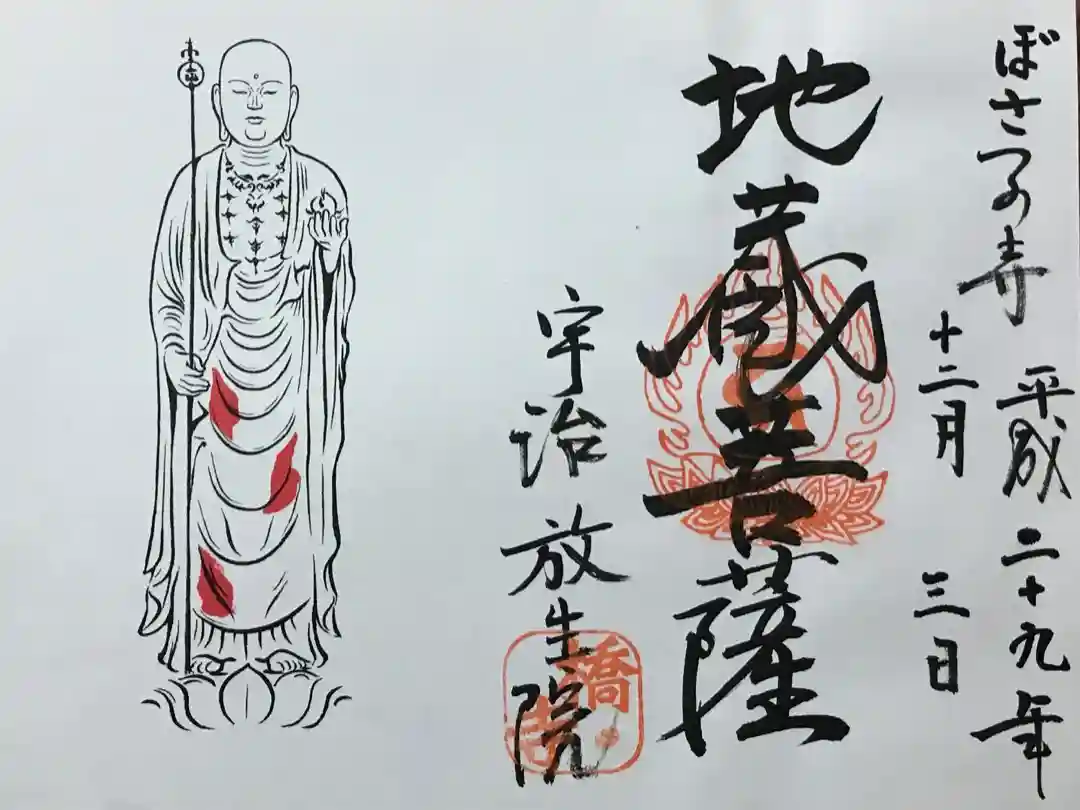 ぼさつの寺
平成二十九年
十二月三日
地蔵菩薩
宇治放生院
橋寺